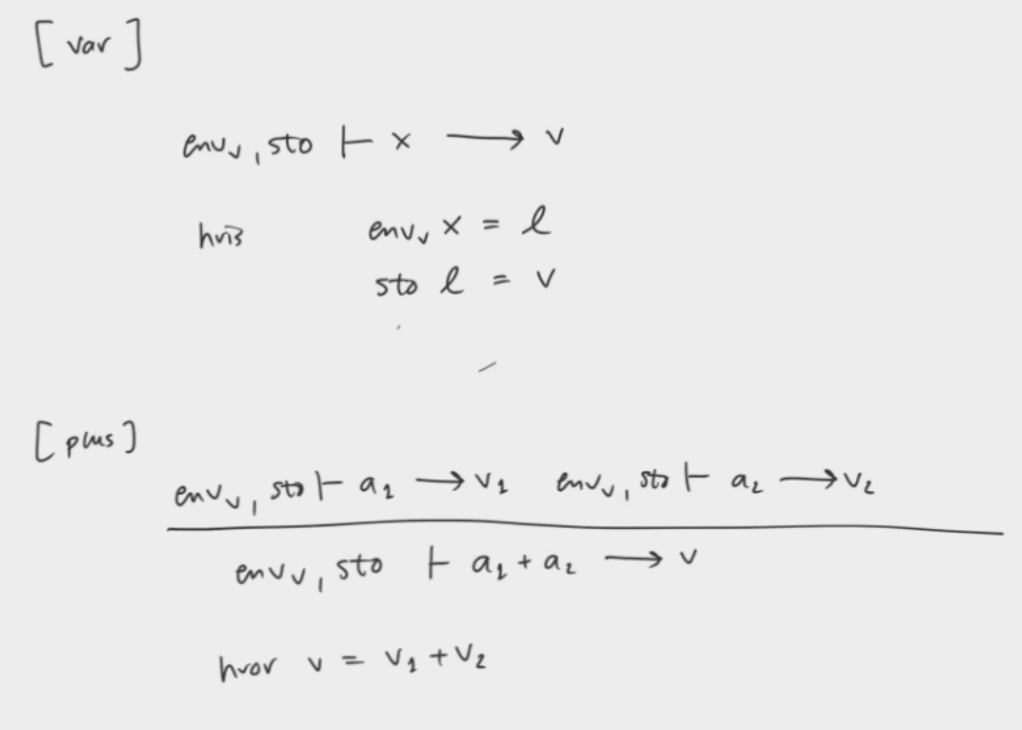 [var]
env_v, sto ⊢ x ⟶ v
hvis env_v x = ℓ
sto ℓ = v
[plus]
env_v, sto ⊢ a₁ ⟶ v₁ env_v, sto ⊢ a₂ ⟶ v₂
env_v, sto ⊢ a₁ + a₂ ⟶ v
hvor v = v₁ + v₂